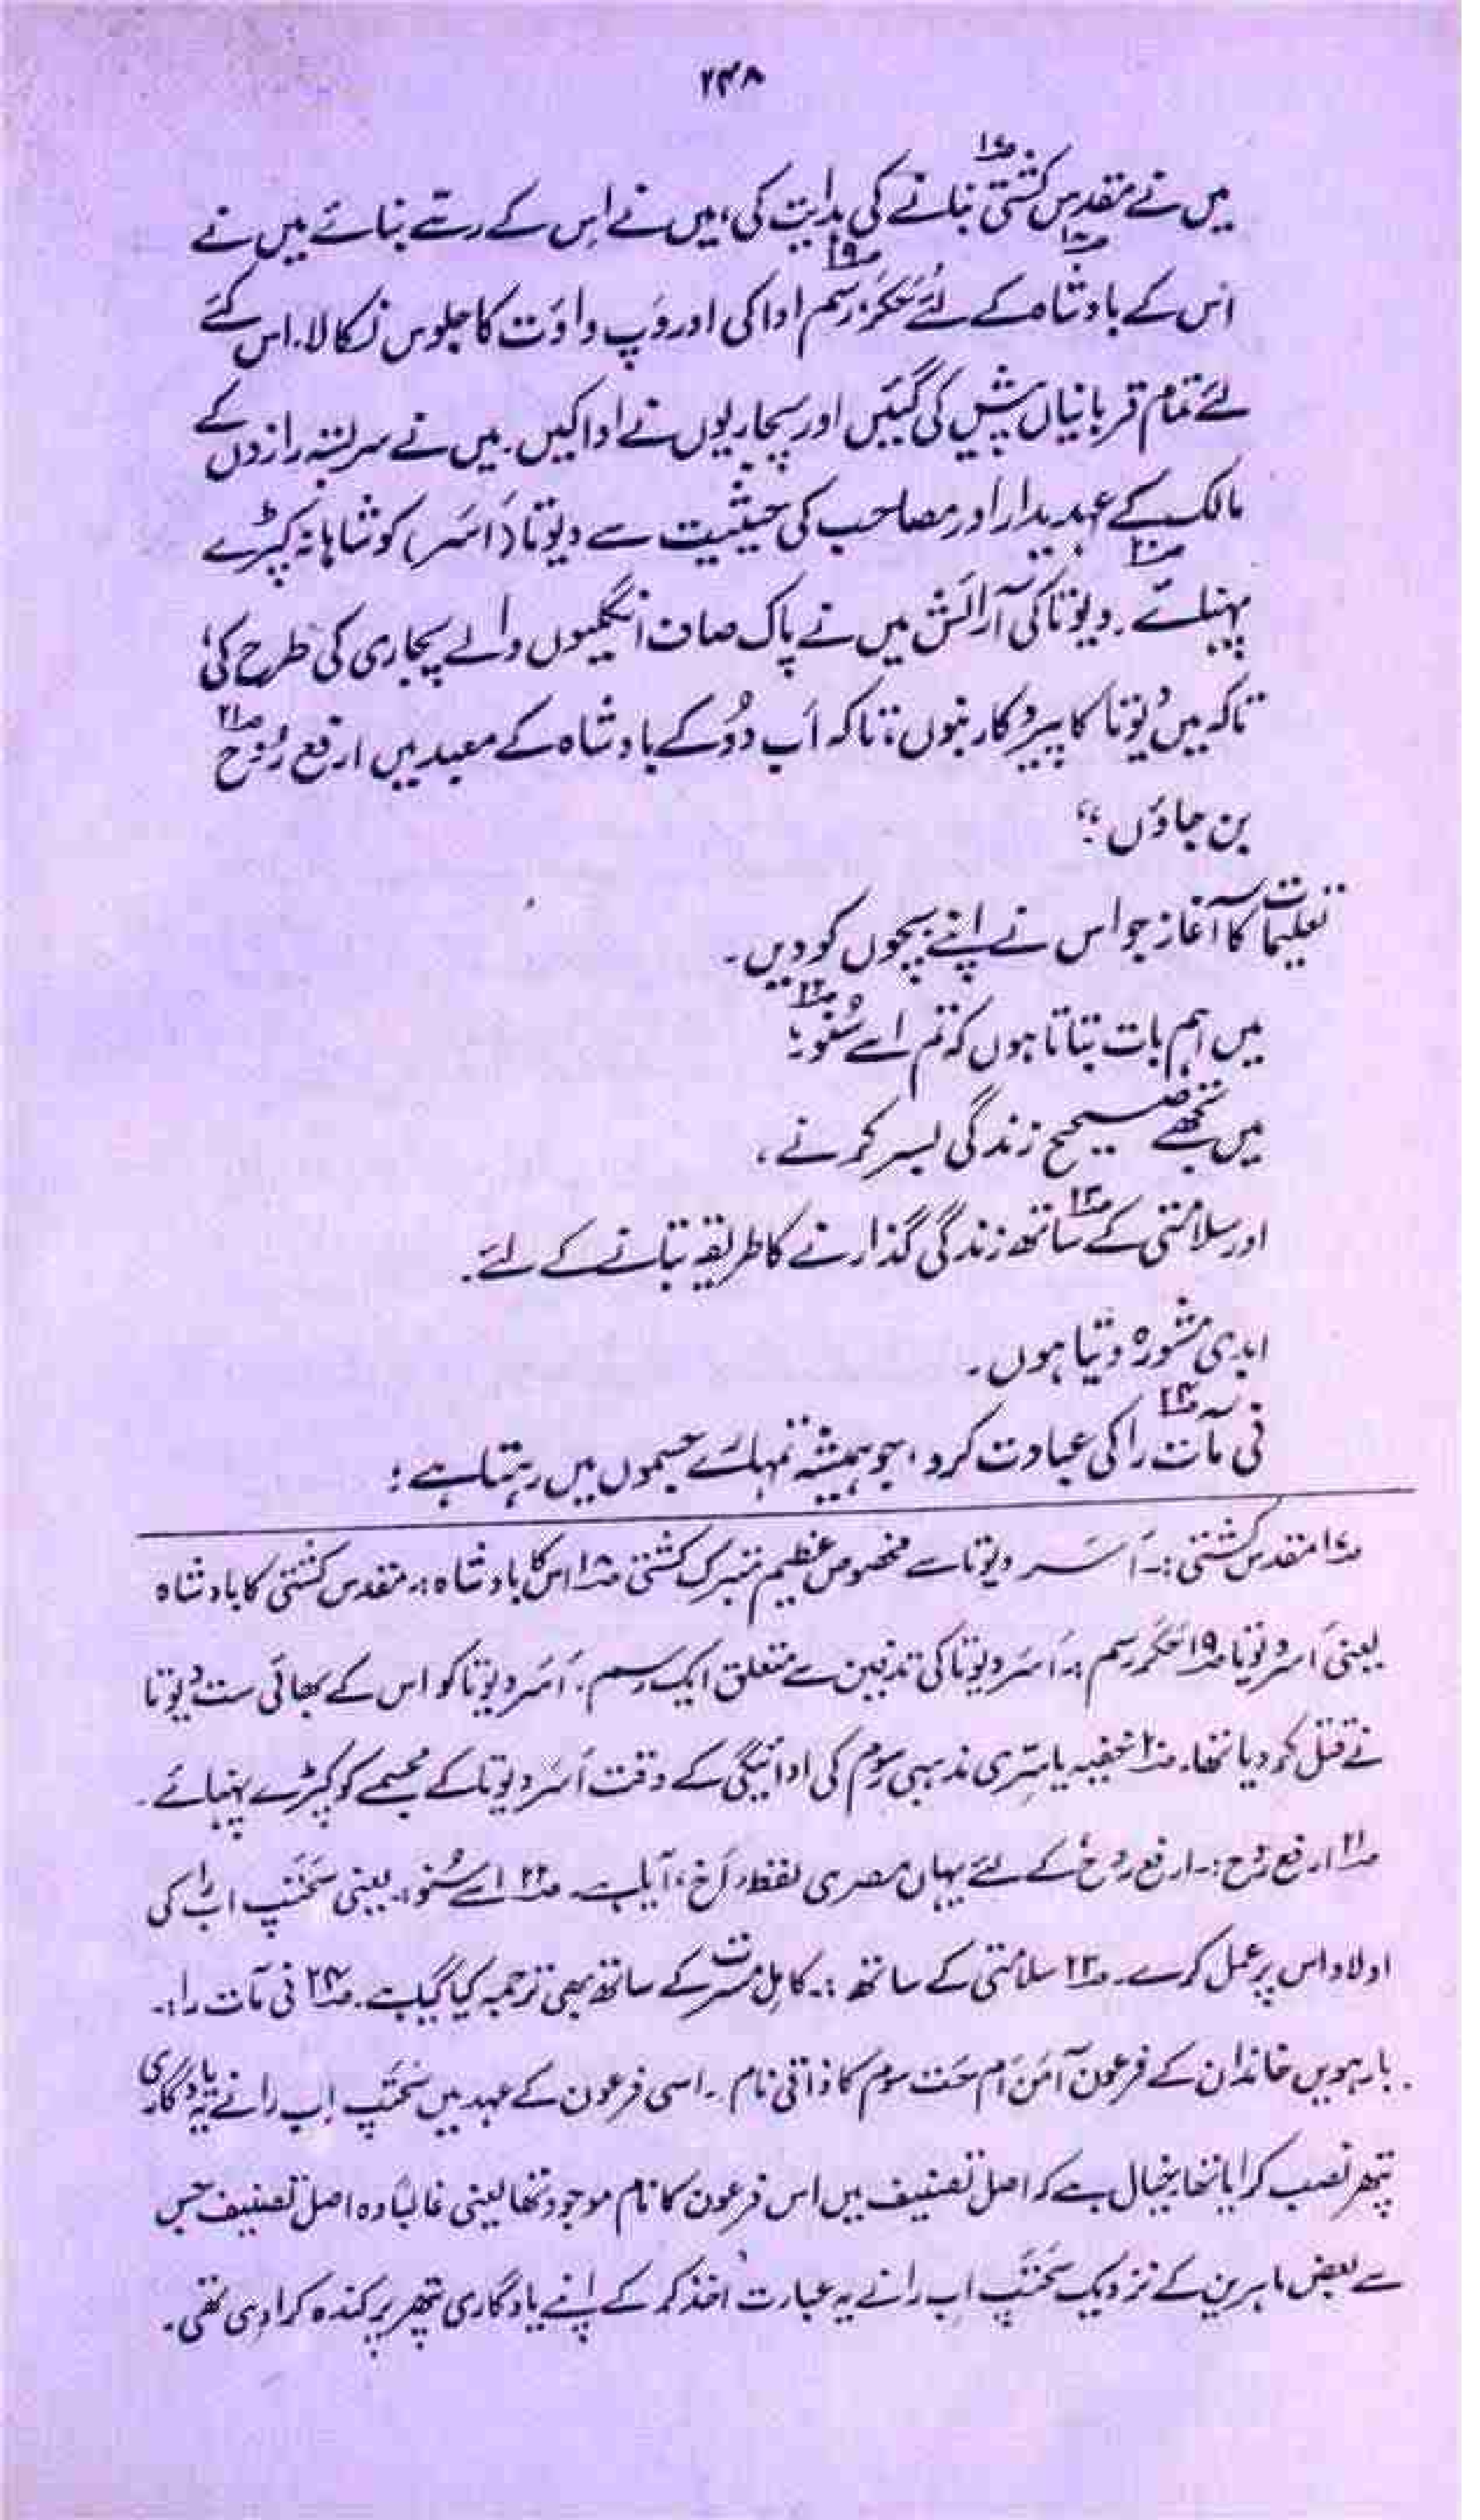 ۲۴۸
میں نے مقدس کشتی۱۷ بنانے کی ہدایت کی، میں نے اس کے رسّے بنائے میں نے
اس کے بادشاہ۱۸ کے لئے حَکَر رسم۱۹ ادا کی اور وَپ واوَت کا جلوس نکالا. اس کے
لئے تمام قربانیاں پیش کی گئیں اور پجاریوں نے ادا کیں. میں نے سربستہ رازوں کے
مالک کے عہدیدار اور مصاحب کی حیثیت سے دیوتا (اَسَر) کو شاہانہ کپڑے
پہنائے۲۰. دیوتا کی آرائش میں نے پاک صاف انگلیوں والے پجاری کی طرح کی
تاکہ میں دیوتا کا پیروکار بنوں، تاکہ اَب دُو کے بادشاہ کے معبد میں ارفع رُوح۲۱
بن جاؤں؛"
تعلیمات کا آغاز جو اس نے اپنے بچوں کو دیں۔
میں اہم بات بتاتا ہوں کہ تم اسے سُنو۲۲؛
میں تجھے صحیح زندگی بسر کرنے،
اور سلامتی کے ساتھ۲۳ زندگی گذارنے کا طریقہ بتانے کے لئے۔
ابدی مشورہ دیتا ہوں۔
نی مات را۲۴ کی عبادت کرو، جو ہمیشہ تمہارے جسموں میں رہتا ہے؛
۱۷ مقدس کشتی :۔ اَسَر دیوتا سے مخصوص عظیم متبرک کشتی ۱۸ اس کا بادشاہ :۔ مقدس کشتی کا بادشاہ
یعنی اَسر دیوتا ۱۹ حَکَر رسم :۔ اَسَر دیوتا کی تدفین سے متعلق ایک رسم. اَسَر دیوتا کو اس کے بھائی ست دیوتا
نے قتل کر دیا تھا. ۲۰ خفیہ یا سِرّی مذہبی رسوم کی ادائیگی کے وقت اَسَر دیوتا کے مجسمے کو کپڑے پہنائے۔
۲۱ ارفع رُوح :۔ ارفع رُوح کے لئے یہاں مصری لفظ "اَخ" آیا ہے۔ ۲۲ اسے سُنو :۔ یعنی سَحَتپ اب را کی
اولاد اس پر عمل کرے۔ ۲۳ سلامتی کے ساتھ :۔ کامل مسرت کے ساتھ بھی ترجمہ کیا گیا ہے۔ ۲۴ نی مات را :۔
بارہویں خاندان کے فرعون آمَن اَم حَت سوم کا ذاتی نام ۔ اسی فرعون کے عہد میں سَحَتپ اب را نے یہ یادگاری
پتھر نصب کرایا تھا خیال ہے کہ اصل تصنیف میں اس فرعون کا نام موجود تھا یعنی غالباً وہ اصل تصنیف جس
سے بعض ماہرین کے نزدیک سَحَتپ اب را نے یہ عبارت اخذ کر کے اپنے یادگاری پتھر پر کندہ کرا دی تھی۔